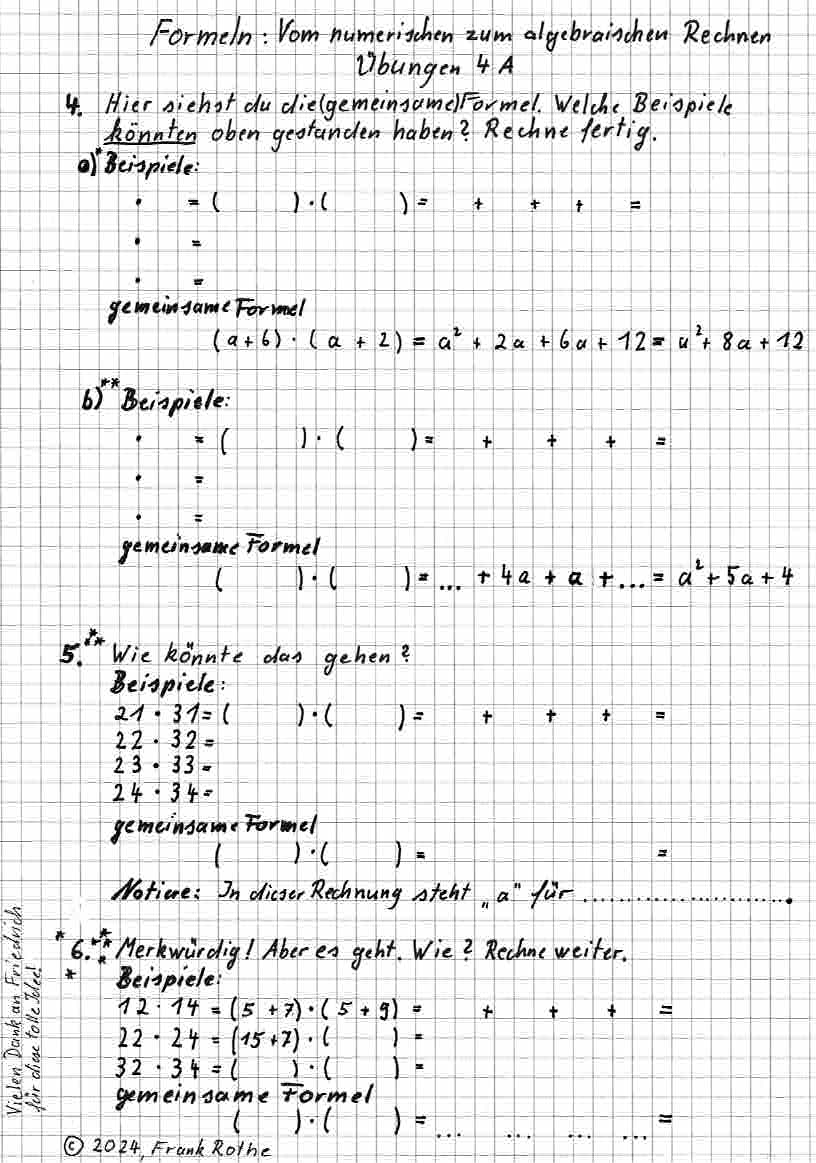 Formeln: Vom numerischen zum algebraischen Rechnen
Übungen 4 A
4. Hier siehst du die (gemeinsame) Formel. Welche Beispiele
könnten oben gestanden haben? Rechne fertig.
a)* Beispiele:
· = ( ) · ( ) = + + + =
· =
· =
gemeinsame Formel
(a + 6) · (a + 2) = a² + 2a + 6a + 12 = a² + 8a + 12
b)** Beispiele:
· = ( ) · ( ) = + + + =
· =
· =
gemeinsame Formel
( ) · ( ) = ... + 4a + a + ... = a² + 5a + 4
5.*** Wie könnte das gehen?
Beispiele:
21 · 31 = ( ) · ( ) = + + + =
22 · 32 =
23 · 33 =
24 · 34 =
gemeinsame Formel
( ) · ( ) = =
Notiere: In dieser Rechnung steht „a" für ........................
*6.**** Merkwürdig! Aber es geht. Wie? Rechne weiter.
* Beispiele:
12 · 14 = (5 + 7) · (5 + 9) = + + + =
22 · 24 = (15 + 7) · ( ) =
32 · 34 = ( ) · ( ) =
gemeinsame Formel
( ) · ( ) = ... ... ... ... =
© 2024, Frank Rothe
Vielen Dank an Friedrich
für diese tolle Idee!